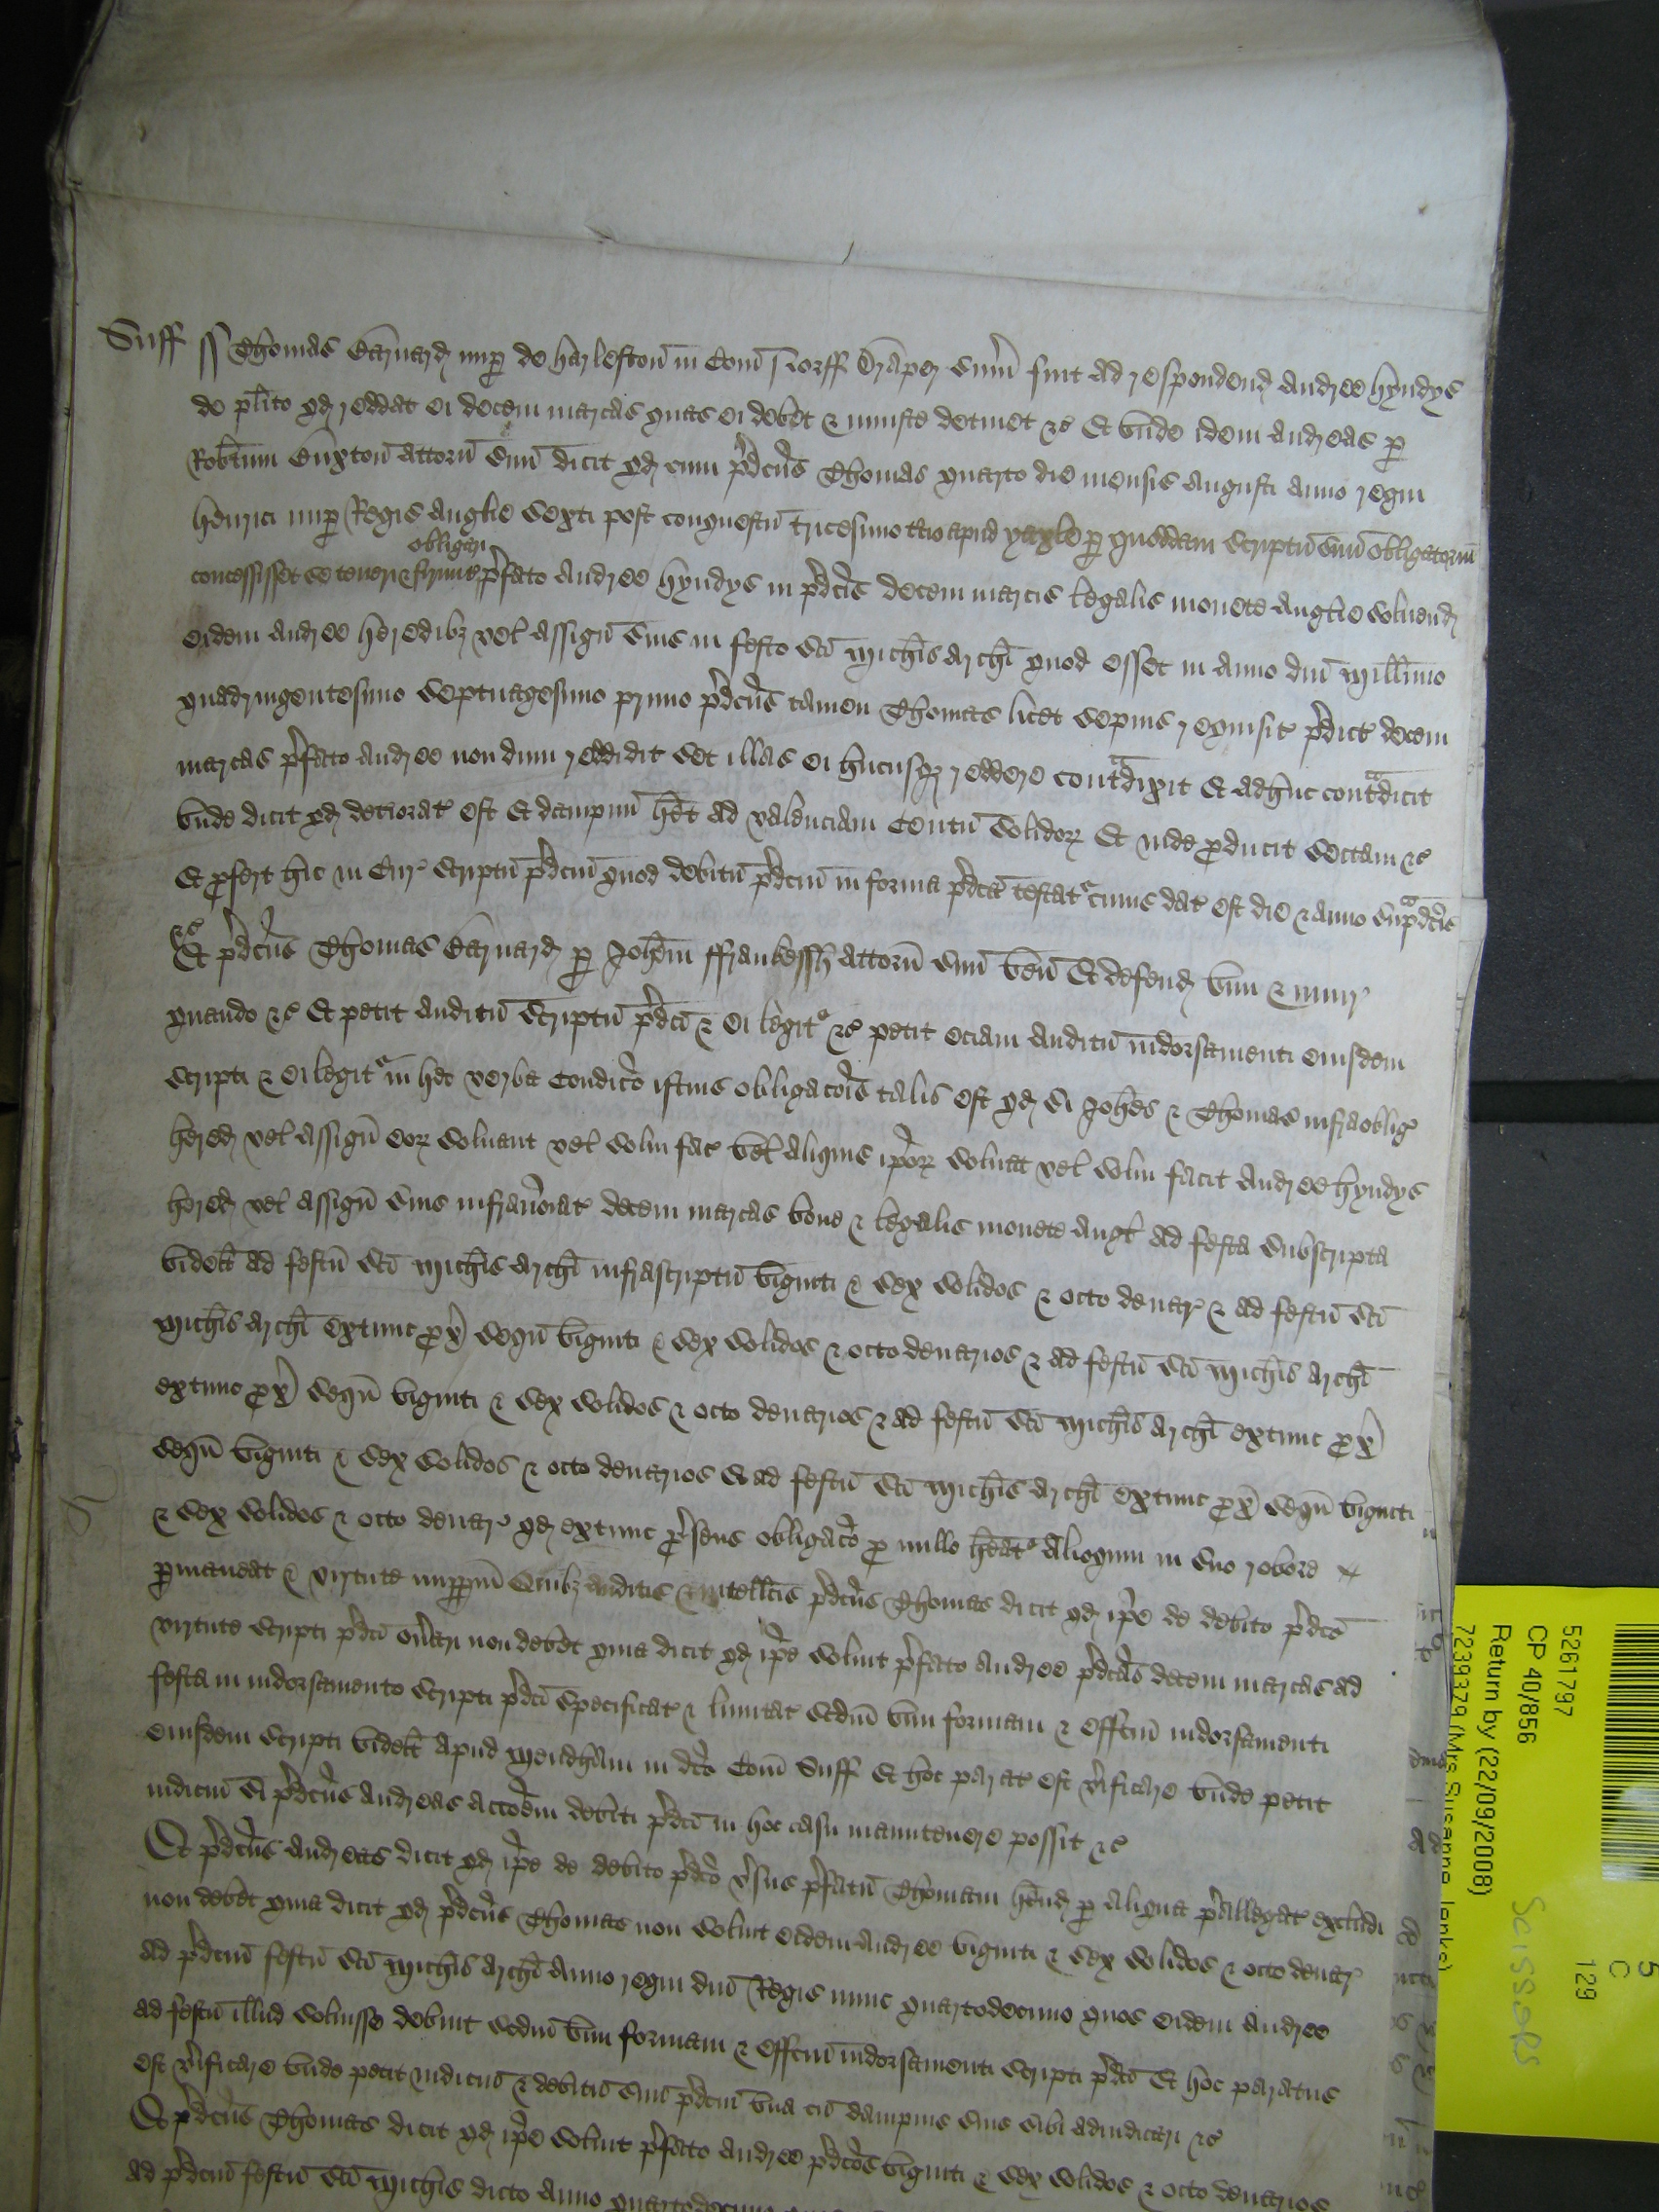 Suff ss Thomas Barnard nup de harleston in Com Norff Draper sum fuit ad respondend Andree hyndys
de plito qd reddat ei decem marcas quas ei debet & iniuste detinet &c Et unde idem Andreas p
Robtum Buxton attorn suu dicit qd cum pdcus Thomas quarto die mensis Augusti anno regni
henrici nup Regis Anglie sexti post conquestu tricesimo tcio apud yaxle p quoddam scriptu suu obligatoriu
obligari
concessisset se teneri & firmit pfato Andree hyndys in pdcis decem marcis legalis monete Anglie soluend
eidem Andree heredibz vel assign suis in festo sci Michis archi quod esset in anno dni millimo
quadringentesimo septuagesimo primo pdcus tamen Thomas licet sepius requisit pdict decem
marcas pfato Andree nondum reddidit set illas ei hucusqz reddere contadixit Et adhuc contadicit
unde dicit qd deteriorat est Et dampnu het ad valenciam Centu solidorz Et inde producit sectam &c
Et profert hic in Cur scriptu pdcm quod debitu pdcm in forma pdca testat cuius dat est die & anno supadcis
&c
Et pdcus Thomas Barnard p Johem ffrankyssh attorn suu ven Et defend vim & iniur
quando &c Et petit auditu scripti pdci & ei legit &c petit eciam auditu indorsamenti eiusdem
scripti & ei legit in hec verba Condicio istius obligacois talis est qd si Johes & Thomas infraoblig
hered vel assign eorz soluant vel solui fac vel aliquis ipsorz soluat vel solui facit Andree hyndys
hered vel assign suis infranoiat decem marcas bone & legalis monete Angl ad festa subscripta
videlt ad festu sci Michis archi infrascriptu viginti & sex solidos & octo denar & ad festu sci
Michis archi extunc prox sequn viginti & sex solidos & octo denarios & ad festu sci Michis archi
extunc prox sequn viginti & sex solidos & octo denarios & ad festu sci Michis archi extunc prox
sequn viginti & sex solidos & octo denarios Et ad festu sci Michis archi extunc prox sequn viginti
& sex solidos & octo denar qd extunc psens obligaco pro nullo heat alioquin in suo robore
pmaneat & virtute impptm Quibz auditis & intellcis pdcus Thomas dicit qd ipe de debito pdco
virtute scripti pdci onari non debet quia dicit qd ipe soluit pfato Andree pdcas decem marcas ad
festa in indorsamento scripti pdci specificat & limitat scdm vim formam & effcm indorsamenti
eiusdem scripti videlt apud Mendham in dco Com Suff Et hoc parat est vificare unde petit
iudiciu si pdcus Andreas accoem debiti pdci in hoc casu manutenere possit &c
Et pdcus Andreas dicit qd ipe de debito pdco vsus pfatu Thomam hend p aliqua pallegat excludi
non debet quia dicit qd pdcus Thomas non soluit eidem Andree viginti & sex solidos & octo denar
ad pdcm festu sci Michis archi anno regni dni Regis nunc quartodecimo quos eidem Andree
ad festu illud soluisse debuit scdm vim formam & effcm indorsamenti scripti pdci Et hoc paratus
est vificare unde petit iudiciu & debitu suu pdcm una cu dampnis suis sibi adiudicari &c
Et pdcus Thomas dicit qd ipe soluit pfato Andree pdcos viginti & sex solidos & octo denarios
ad pdcm festu sci Michis dicto anno quartodecimo
5261797
CP 40/856
Return by (22/09/2008)
7239379 (Mrs Susanne Jenks)
Scissors
129
5
C